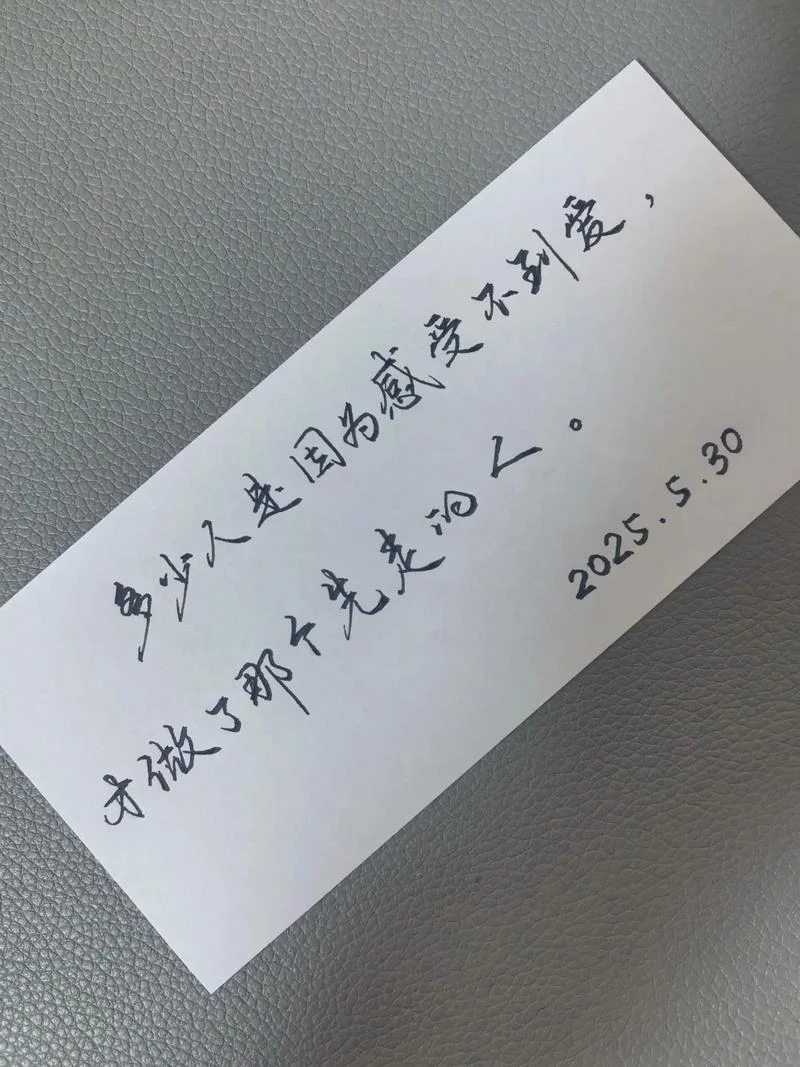 多少人是因为感受不到爱，
才做了那个先走的人。
2025.5.30